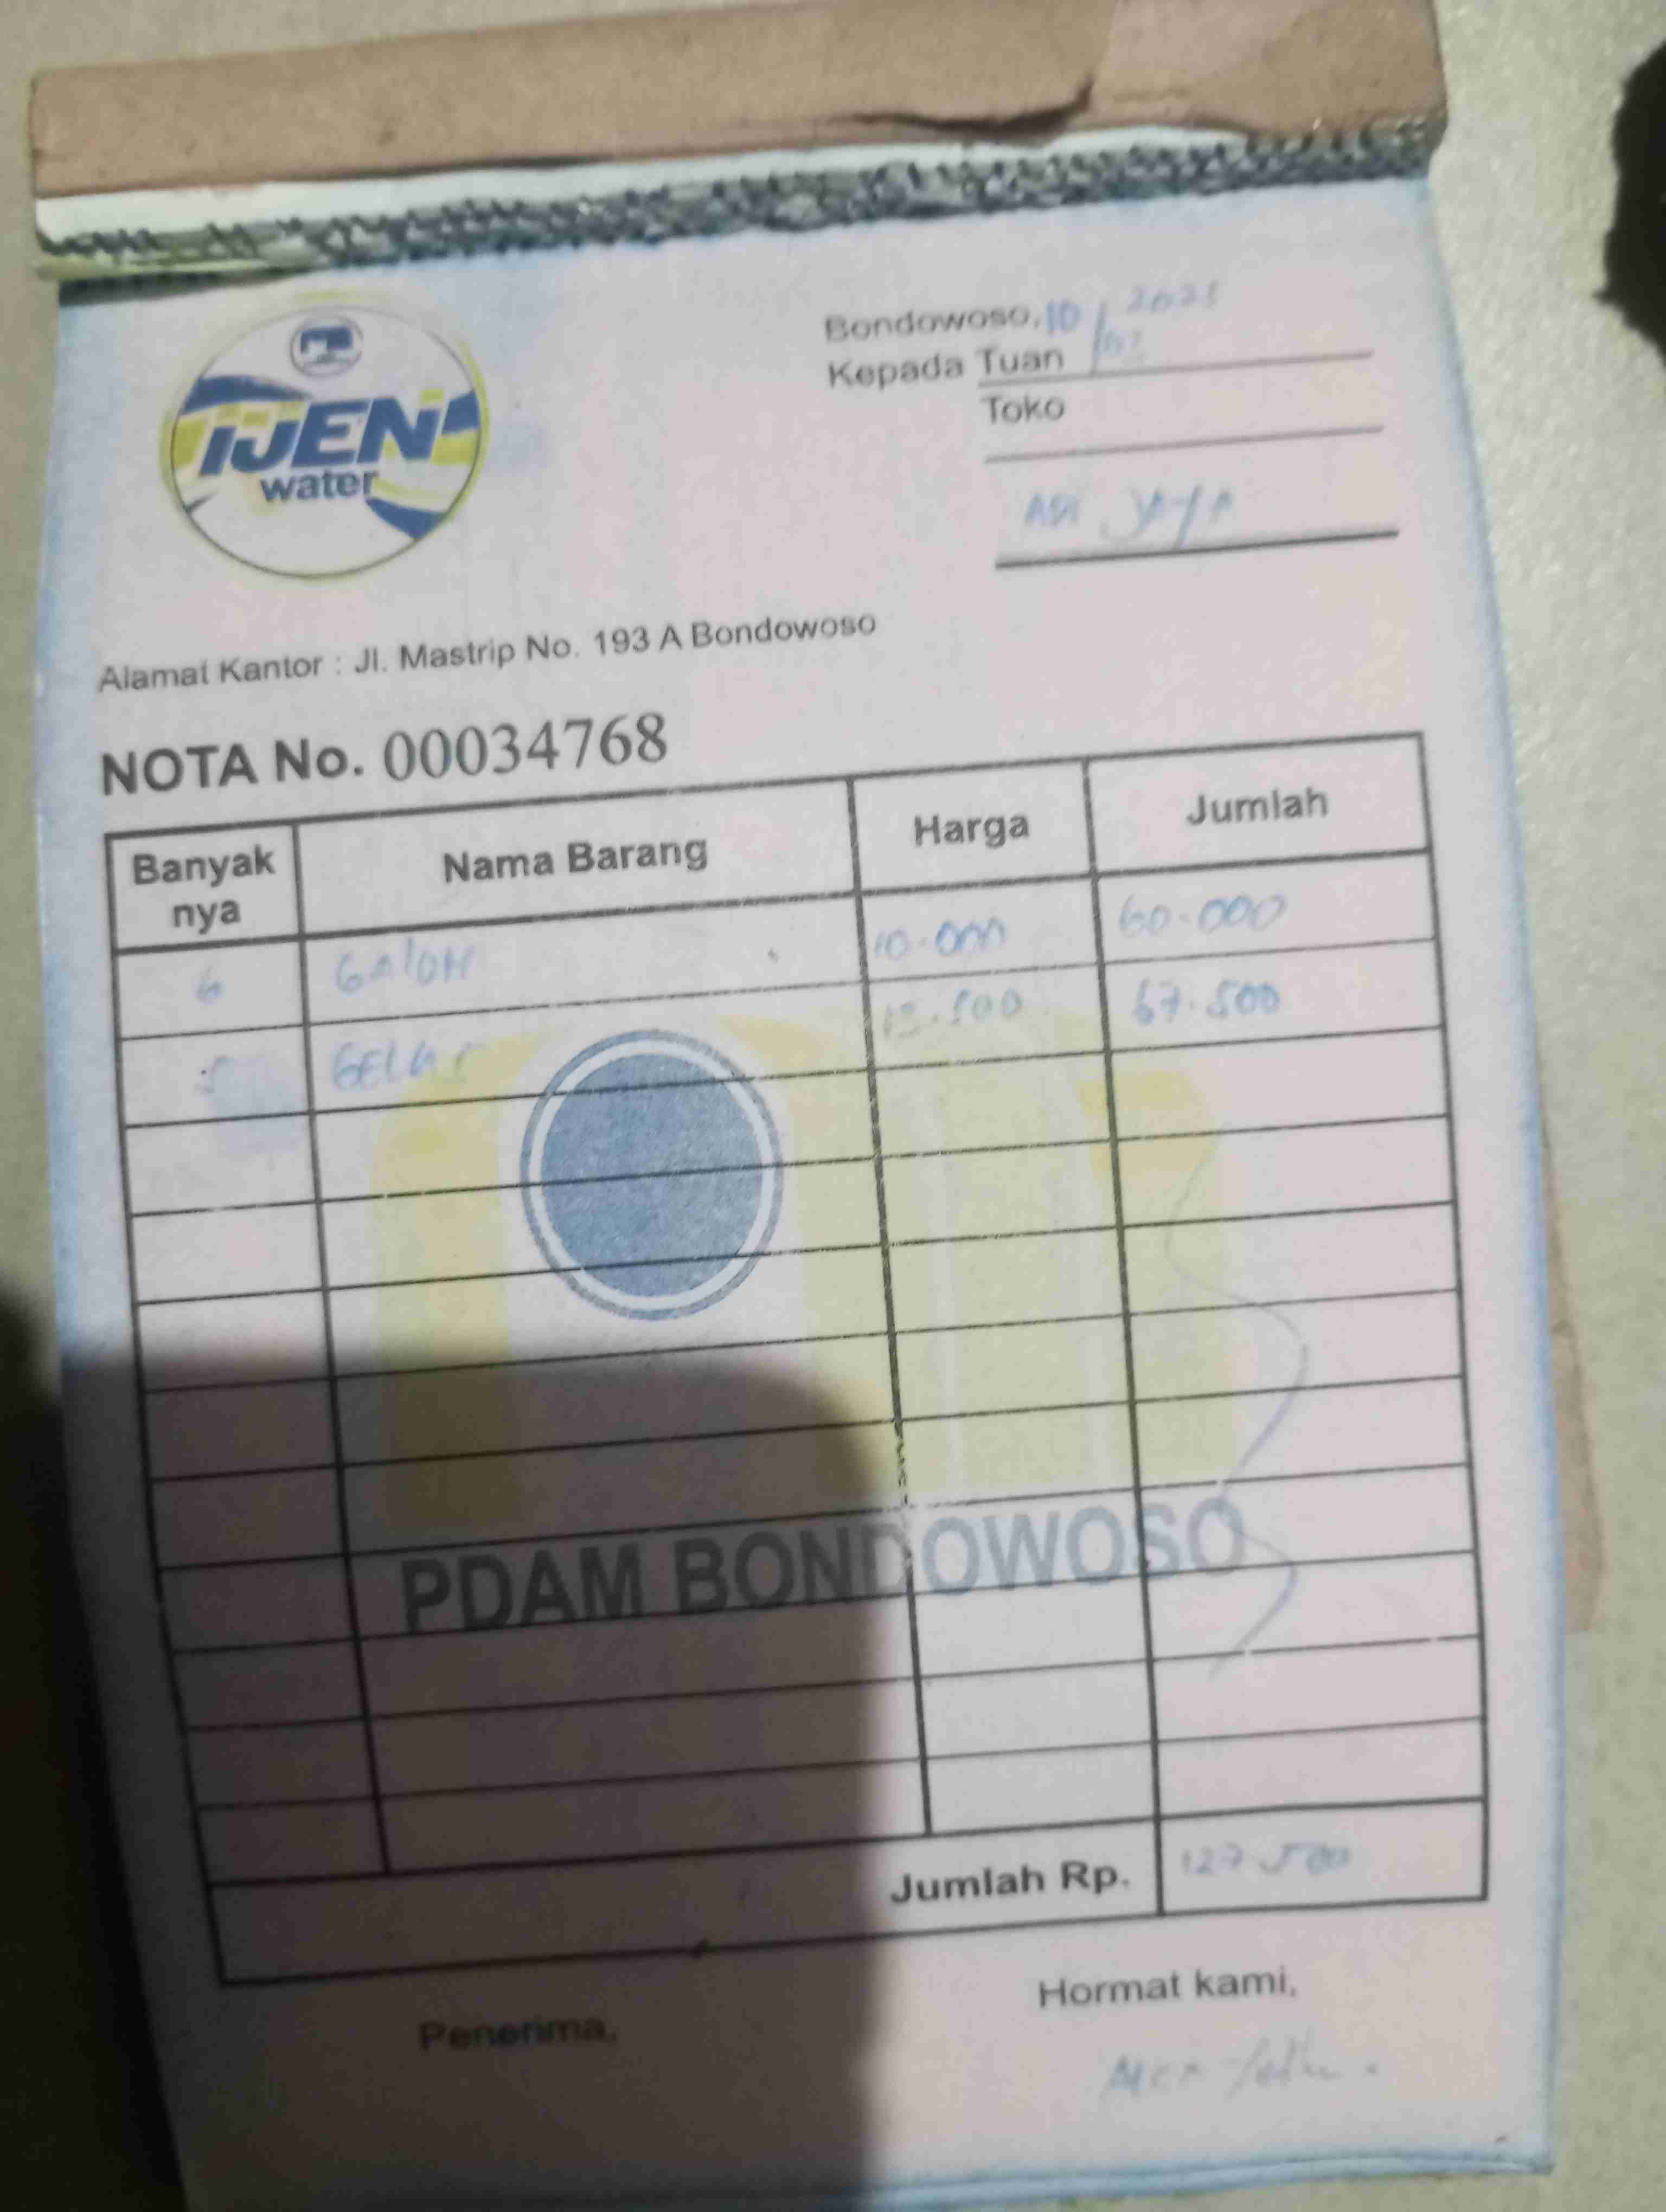 IJEN
water
Bondowoso, 10/02 2025
Kepada Tuan
Toko
ADI JAYA
Alamat Kantor : Jl. Mastrip No. 193 A Bondowoso
NOTA No. 00034768
Banyak nya Nama Barang Harga Jumlah
6 GALON 10.000 60.000
5 GELAS 13.500 67.500
PDAM BONDOWOSO
Jumlah Rp. 127.500
Penerima,
Hormat kami,